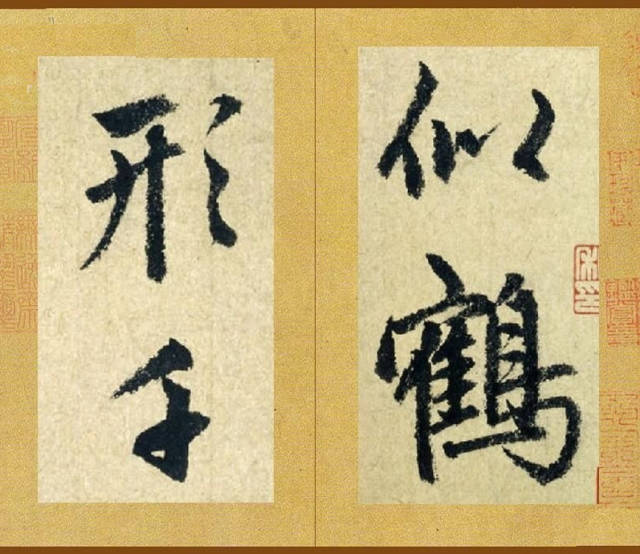 似鶴
形千